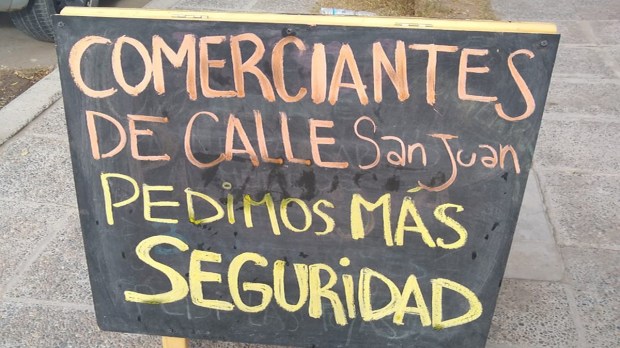 COMERCIANTES
DE CALLE San Juan
PEDIMOS MÁS
SEGURIDAD